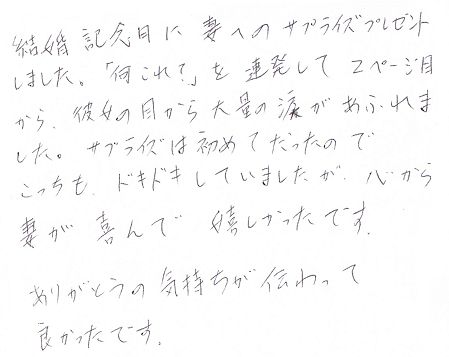 結婚記念日に妻へのサプライズプレゼント
しました。「何これ?」を連発して2ページ目
から、彼女の目から大量の涙があふれま
した。サプライズは初めてだったので
こっちも、ドキドキしていましたが、心から
妻が喜んで嬉しかったです。
ありがとうの気持ちが伝わって
良かったです。